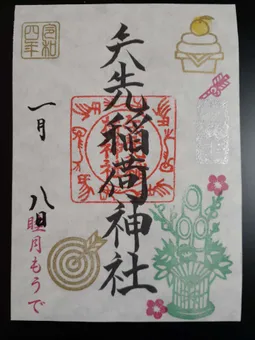 矢先稲荷神社
令和
四年
一月
八日
睦月もうで